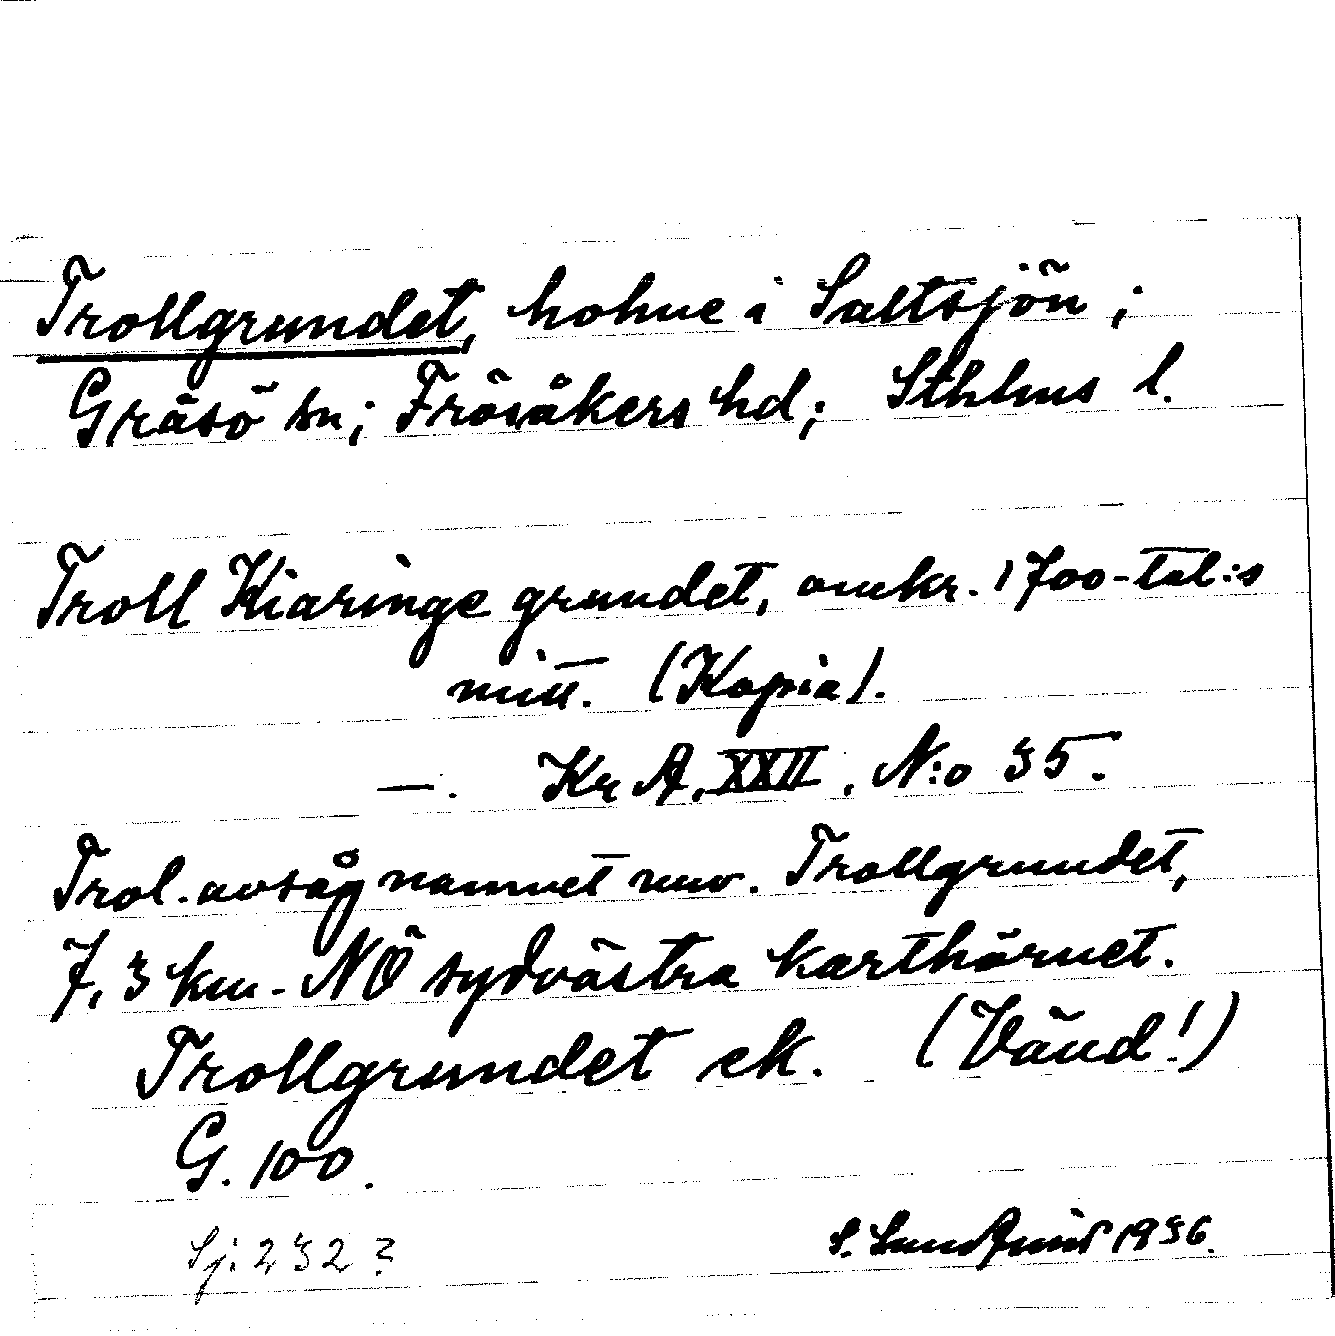 Trollgrundet, holme i Saltsjön;
Gräsö sn; Frösåkers hd; Sthlms l.
Troll Kiaringe grundet, omkr. 1700-tal:s
mitt. (Kopia).
—. Kr A. XXII, N:o 35.
Trol. avsåg namnet nuv. Trollgrundet,
7,3 km. NÖ sydvästra karthörnet.
Trollgrundet ek. (Vänd!)
G. 100.
Sj. 232?
S. 1936.